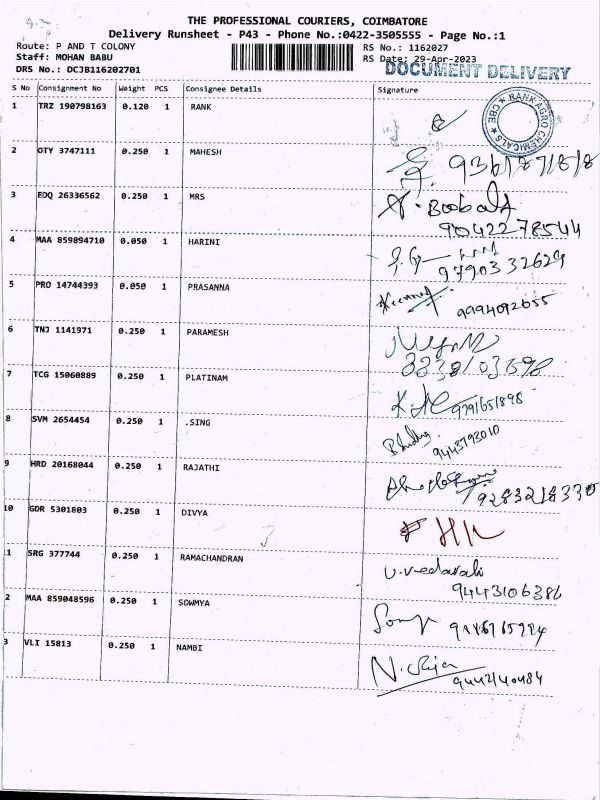 THE PROFESSIONAL COURIERS, COIMBATORE
Delivery Runsheet - P43 - Phone No.:0422-3505555 - Page No.:1
Route: P AND T COLONY RS No.: 1162027
Staff: MOHAN BABU RS Date: 29-Apr-2023
DRS No.: DCJB116202701 DOCUMENT DELIVERY
S No Consignment No Weight PCS Consignee Details Signature
1 TRZ 190798163 0.120 1 RANK
RANK AGRO CHEMICALS ★ CBE ★
2 OTY 3747111 0.250 1 MAHESH
3 EDQ 26336562 0.250 1 MRS
9042278544
4 MAA 859894710 0.050 1 HARINI
9790332629
5 PRO 14744393 0.050 1 PRASANNA
9994092655
6 TNJ 1141971 0.250 1 PARAMESH
7 TCG 15060889 0.250 1 PLATINAM
9791651898
8 SVM 2654454 0.250 1 .SING
9443793010
9 HRD 20168044 0.250 1 RAJATHI
9283218330
10 GDR 5301803 0.250 1 DIVYA
1 SRG 377744 0.250 1 RAMACHANDRAN
9443106386
2 MAA 859048596 0.250 1 SOWMYA
3 VLI 15813 0.250 1 NAMBI
9442140484